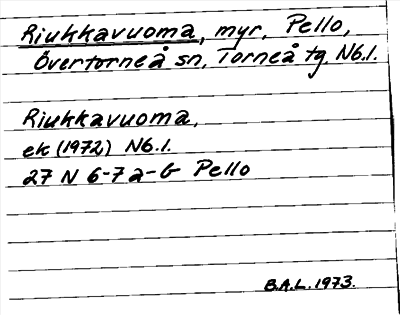 Riukkavuoma, myr, Pello,
Övertorneå sn, Torneå tg. Nb.l.
Riukkavuoma,
ek (1972) Nb.l.
27 N 6-7 a-b Pello
B.A.L. 1973.